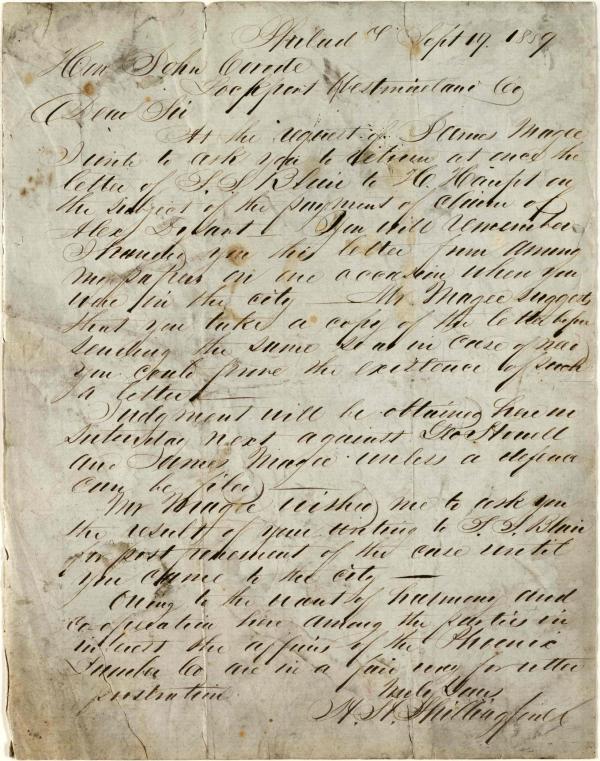 Philad a Sept 19. 1859
Hon John Covode
Lockport Westmoreland Co
Dear Sir
At the request of James Magee
I write to ask you to return at once the
letter of S. S. Blair to H. Haupt on
the subject of the payment of claim of
Alex You will remember
I handed you this letter from among
my papers on one occasion when you
were in the city — Mr. Magee suggests
that you take a copy of the letter before
sending the same so as in case of need
you could prove the existence of such
a letter —
Judgment will be obtained here on
Saturday next against Geo Howell
and James Magee unless a defence
can be filed —
Mr Magee wishes me to ask you
the result of your writing to S. S. Blair
for postponement of the case until
you came to the city —
Owing to the want of harmony and
co-operation here among the parties in
interest the affairs of the Phoenix
Lumber Co are in a fair way for utter
prostration.
Truly Yours
H. H. Shillingford